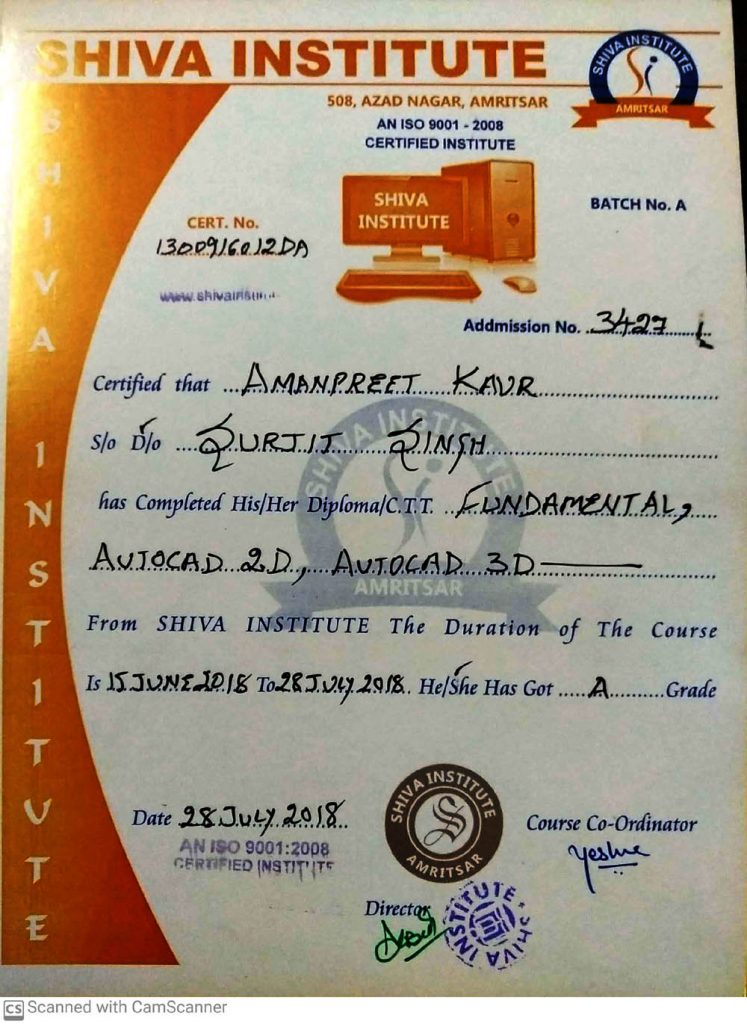 SHIVA INSTITUTE
SHIVA INSTITUTE
AMRITSAR
508, AZAD NAGAR, AMRITSAR
AN ISO 9001 - 2008
CERTIFIED INSTITUTE
SHIVA INSTITUTE
SHIVA
INSTITUTE
BATCH No. A
CERT. No.
1300916012DA
Addmission No. 3427
Certified that AMANPREET KAUR
S/o D/o GURJIT SINGH
SHIVA INSTITUTE
has Completed His/Her Diploma/C.T.T. FUNDAMENTAL,
AUTOCAD 2D, AUTOCAD 3D
AMRITSAR
From SHIVA INSTITUTE The Duration of The Course
Is 15 JUNE 2018 To 28 JULY 2018. He/She Has Got A Grade
SHIVA INSTITUTE
AMRITSAR
Date 28 JULY 2018
AN ISO 9001:2008
CERTIFIED INSTITUTE
Course Co-Ordinator
Director
SHIVA INSTITUTE
CS Scanned with CamScanner